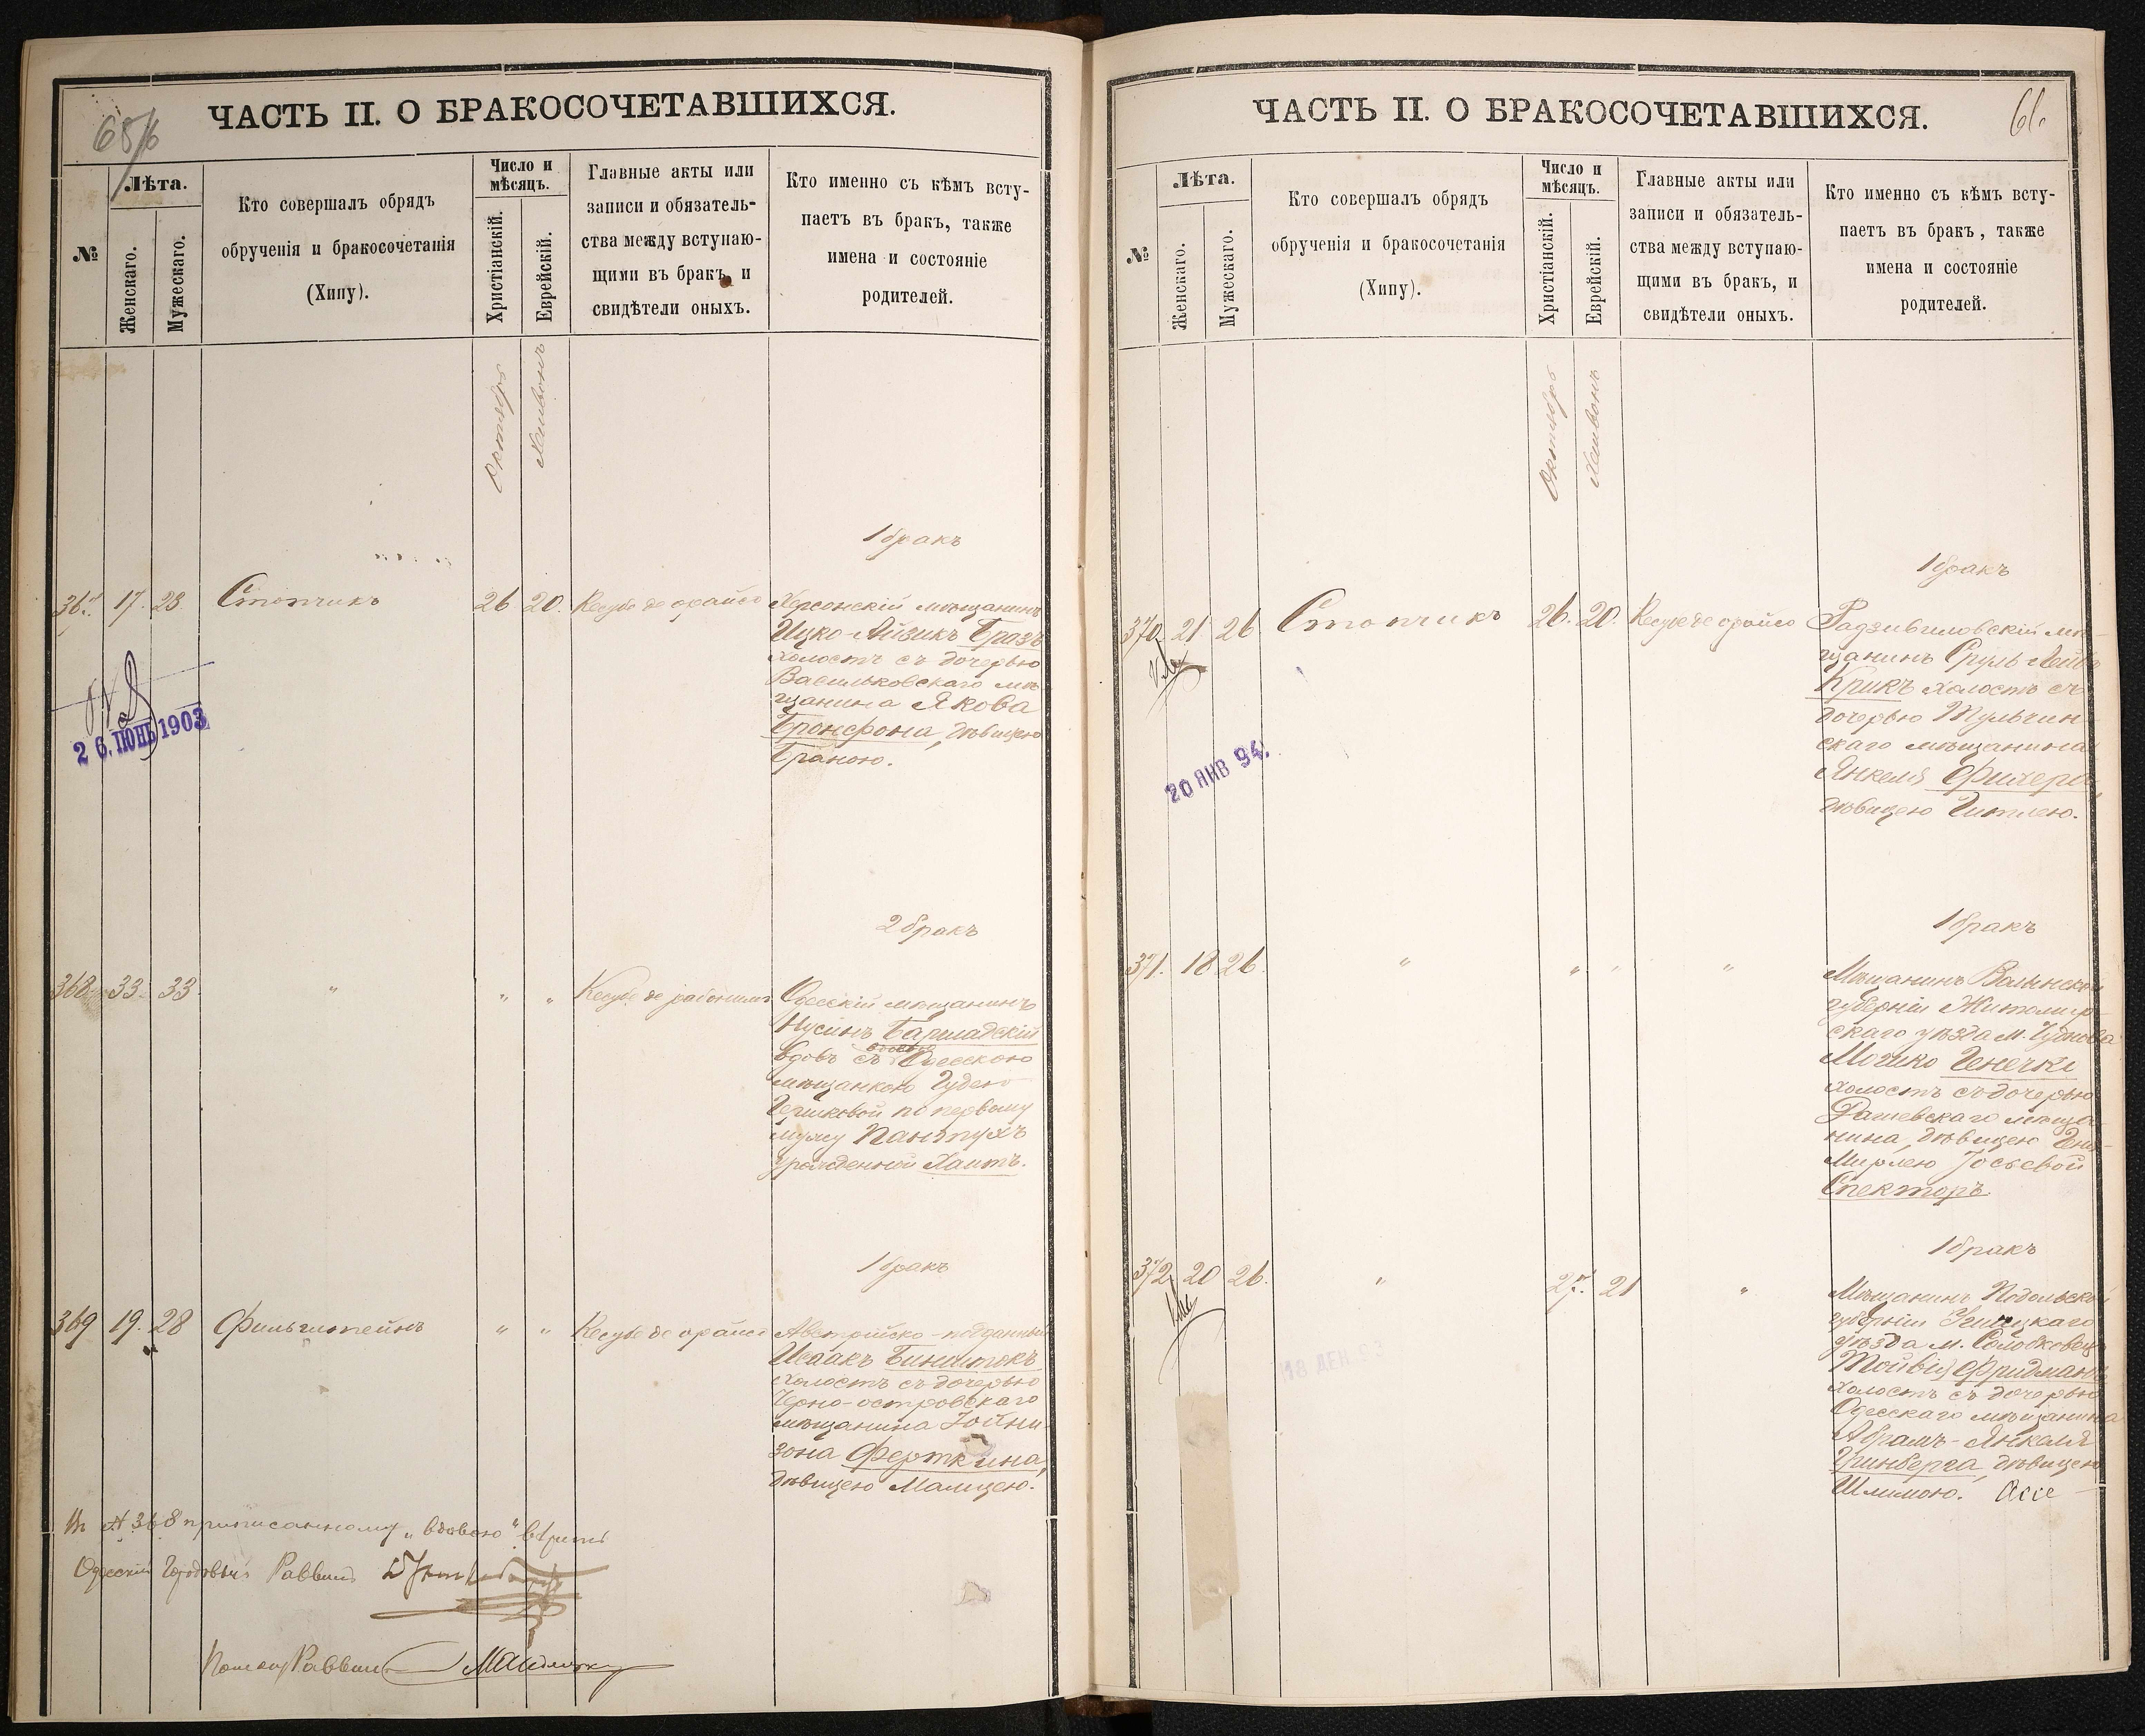 65/6
ЧАСТЬ II. О БРАКОСОЧЕТАВШИХСЯ.
№
Лѣта.
Женскаго.
Мужескаго.
Кто совершалъ обрядъ
обрученія и бракосочетанія
(Хипу).
Число и
мѣсяцъ.
Христіанскій.
Еврейскій.
Главные акты или
записи и обязатель-
ства между вступаю-
щими въ бракъ, и
свидѣтели оныхъ.
Кто именно съ кѣмъ всту-
паетъ въ бракъ, также
имена и состояніе
родителей.
Октябрь
Хешвонъ
1 бракъ
367. 17. 28. Стопчикъ 26 20. Кесубе де орайсо Херсонскій мѣщанинъ
Ицко-Айзикъ Бразъ
холостъ съ дочерью
Васильковскаго мѣ-
щанина Якова
Бронфона, дѣвицею
Браною.
26. ІЮНЬ 1903
2 бракъ
368. 33. 33. " " " Кесубе де рабонимъ Одесскій мѣщанинъ
Нусинъ Бармадскій
вдовою
вдовъ съ Одесскою
мѣщанкою Гудею
Гершковой по первому
мужу Пантухъ
урожденной Хаитъ.
1 бракъ
369 19. 28 Фильштейнъ " " Кесубе де орайсо Австрійско-подданный
Исаакъ Бинштокъ
холостъ съ дочерью
Черно-островскаго
мѣщанина Іойни-
зона Ферткина,
дѣвицею Малицею.
№ 368 приписанному "вдовою" вѣрить
Одесскій Городовой Раввинъ
Помощ Раввина
61.
ЧАСТЬ II. О БРАКОСОЧЕТАВШИХСЯ.
№
Лѣта.
Женскаго.
Мужескаго.
Кто совершалъ обрядъ
обрученія и бракосочетанія
(Хипу).
Число и
мѣсяцъ.
Христіанскій.
Еврейскій.
Главные акты или
записи и обязатель-
ства между вступаю-
щими въ бракъ, и
свидѣтели оныхъ.
Кто именно съ кѣмъ всту-
паетъ въ бракъ, также
имена и состояніе
родителей.
Октябрь
Хешвонъ
1 бракъ
370. 21 26. Стопчикъ 26. 20. Кесубе де орайсо Радзивиловскій мѣ-
щанинъ Сруль-Лейб
Крикъ холостъ съ
дочерью Тульчин-
скаго мѣщанина
Янкеля Фихера,
дѣвицею Гитлею.
20 ЯНВ 94.
1 бракъ
371. 18 26. " " " " Мѣщанинъ Волынской
губерніи Житомир-
скаго уѣзда м. Чуднова
Мошко Генечки
холостъ съ дочерью
Дашевскаго мѣща-
нина, дѣвицею Ене-
Мирлею Іосьевой
Спекторъ.
1 бракъ
372. 20 26. " 27. 21 " Мѣщанинъ Подольской
губерніи Ушицкаго
уѣзда м. Солодковецъ
Тойвія Фридманъ
холостъ съ дочерью
Одесскаго мѣщанина
Абрамъ-Янкеля
Гринберга, дѣвицею
Шлимою.
18 ДЕК 93